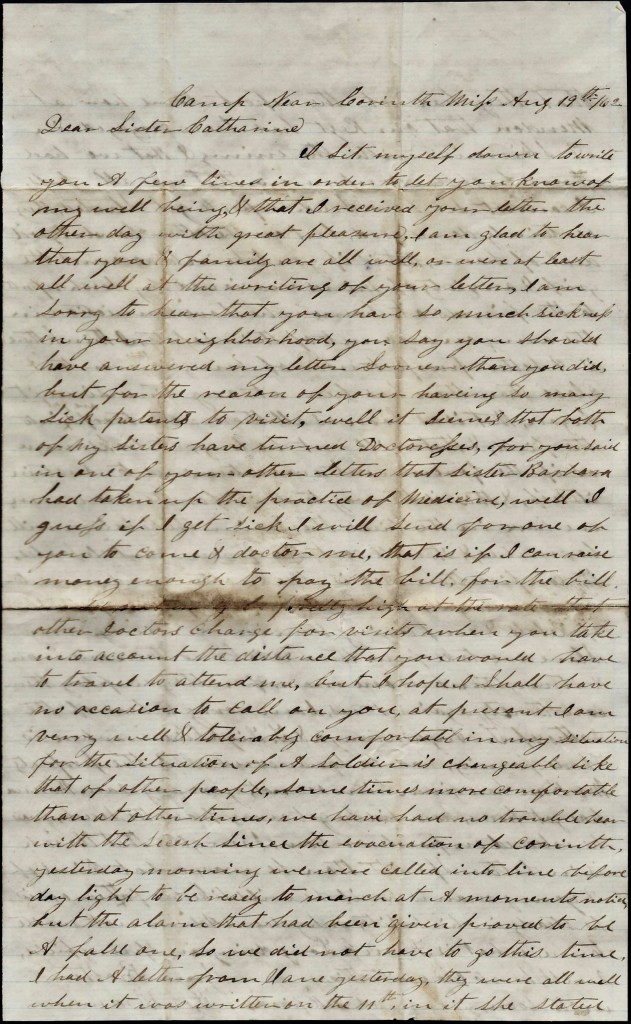 Camp Near Corinth Miss Aug 19th/62
Dear Sister Catharine
I sit myself down to write
you A few lines in order to let you know of
my well being, & that I received your letter the
other day with great pleasure, I am glad to hear
that you & family are all well, or were at least
all well at the writing of your letter, I am
sorry to hear that you have so much sickness
in your neighborhood, you say you should
have answered my letter sooner than you did,
but for the reason of your having so many
sick patents to visit, well it seems that both
of my sisters have turned Doctoresses, for you said
in one of your other letters that Sister Barbara
had taken up the practice of Medicine, well I
guess if I get sick I will send for one of
you to come & doctor me, that is if I can raise
money enough to pay the bill, for the bill
pretty high at the rate that
other Doctors charge for visits when you take
into account the distance that you would have
to travel to attend me, but I hope I shall have
no occasion to call on you, at present I am
verry well & tolerably comfortabl in my situation
for the situation of A soldier is changeable like
that of other people, some times more comfortable
than at other times, we have had no trouble hear
with the Secesh since the evacuation of corinth,
yesterday morning we were called into line before
day light to be ready to march at A moments notice,
but the alarm that had been given proved to be
A false one, so we did not have to go this time,
I had A letter from Jane yesterday, they were all well
when it was written on the 11th, in it she stated